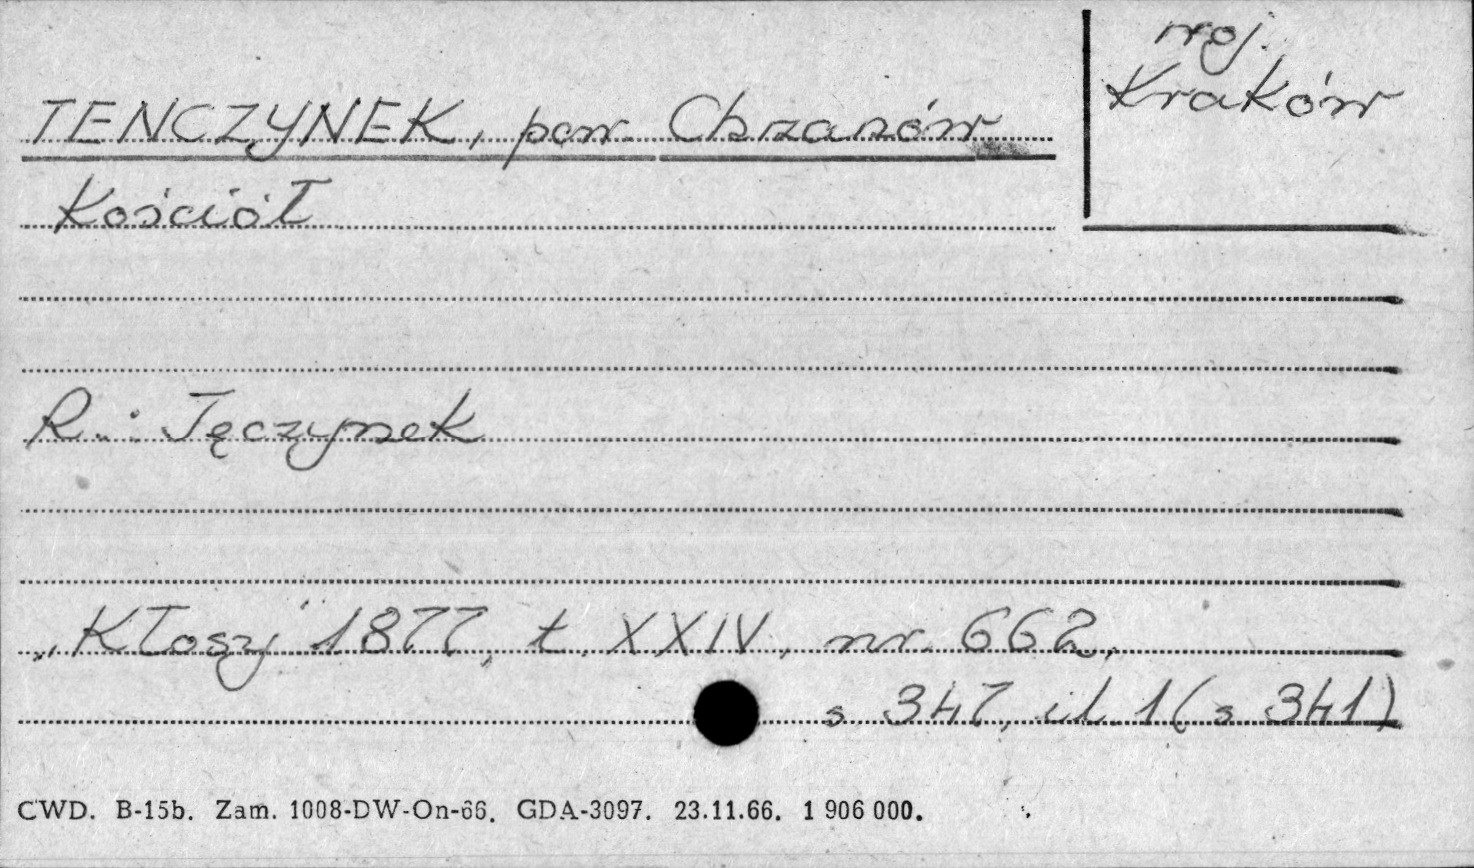 woj.
Kraków
TENCZYNEK, pow. Chrzanów
Kościół
R.: Tęczynek
„Kłosy" 1877, t. XXIV, nr 662,
s 347, il. 1 (s 341)
CWD. B-15b. Zam. 1008-DW-On-66. GDA-3097. 23.11.66. 1 906 000.